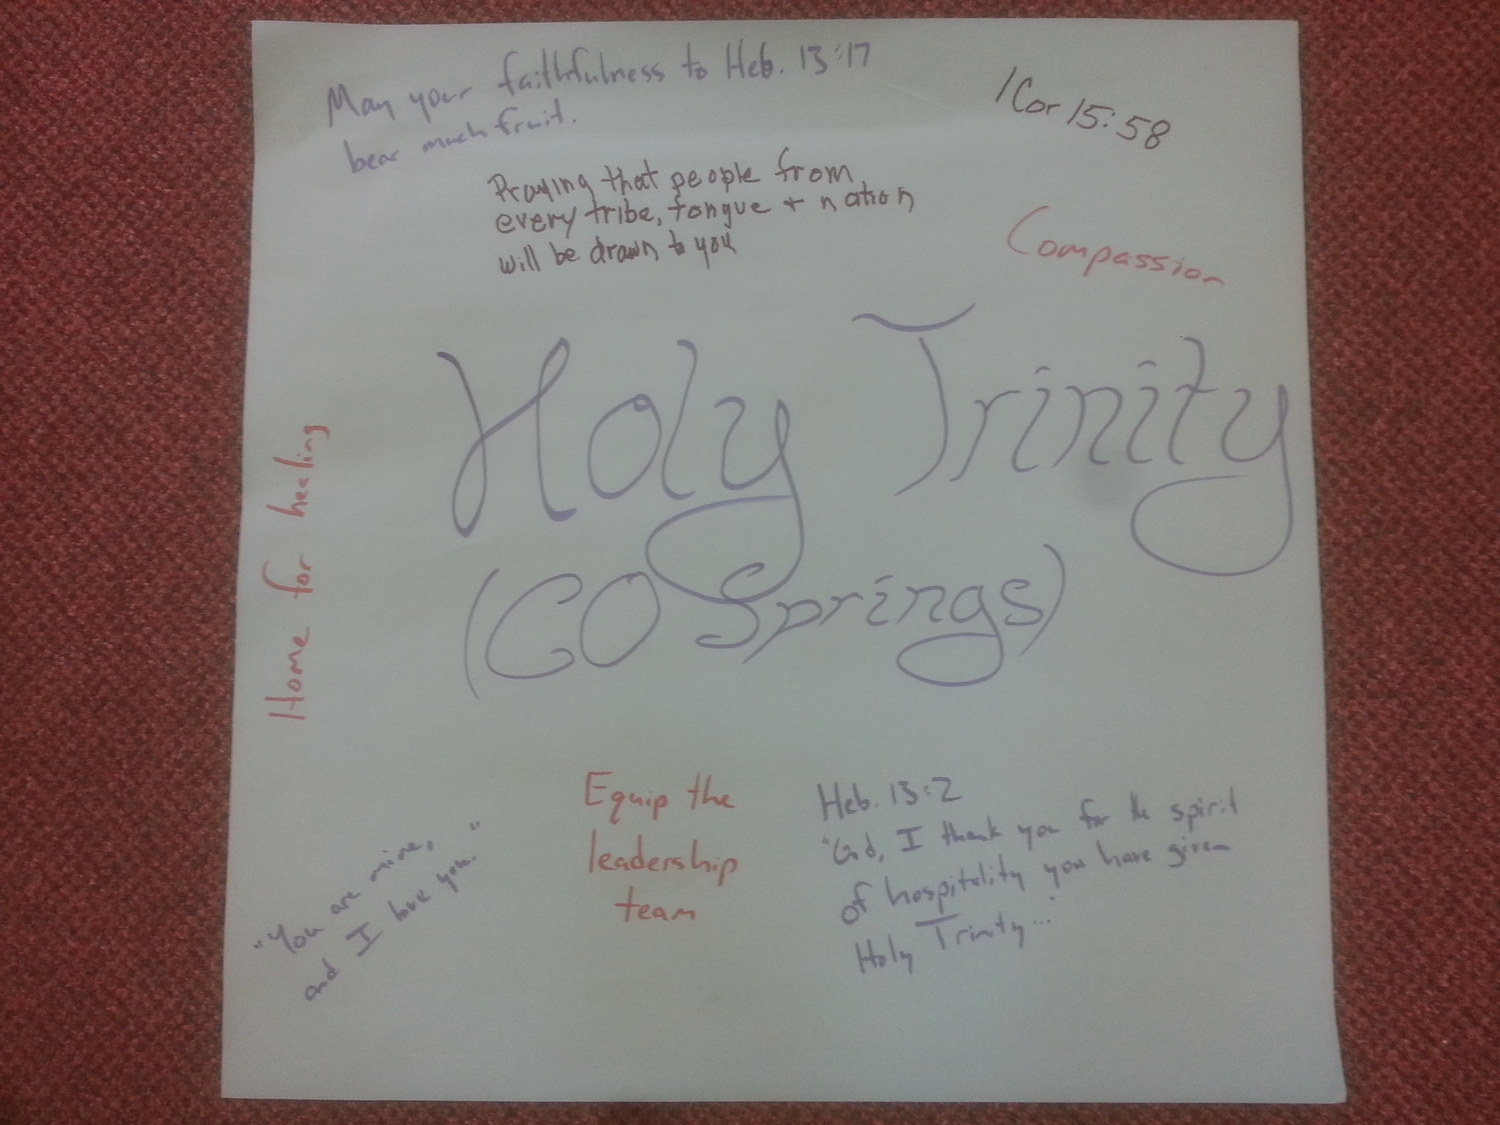 May your faithfulness to Heb. 13:17
bear much fruit.
1 Cor 15:58
Praying that people from
every tribe, tongue + nation
will be drawn to you
Compassion
Holy Trinity
(CO Springs)
Home for healing
Equip the
leadership
team
Heb. 13:2
"God, I thank you for the spirit
of hospitality you have given
Holy Trinity..."
"You are mine,
and I love you."